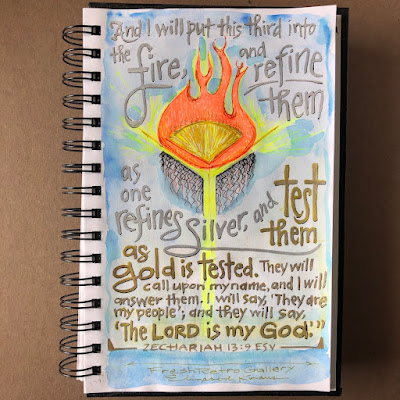 "And I will put this third into
the fire, and refine
them
as
one
refines silver, and test
them
as
gold is tested. They will
call upon my name, and I will
answer them. I will say, 'They are
my people'; and they will say,
'The LORD is my God.'"
ZECHARIAH 13:9 ESV
Fresh Retro Gallery